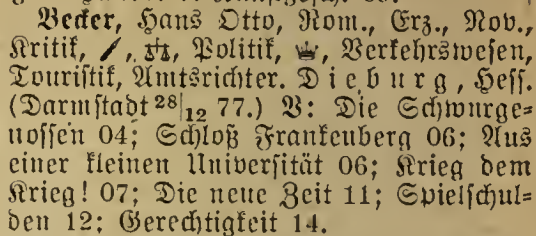 Becker, Hans Otto, Rom., Erz., Nov.,
Kritik, Politik, Verkehrswesen,
Touristik, Amtsrichter. Dieburg, Hess.
(Darmstadt 28/12 77.) V: Die Schwurge=
nossen 04; Schloß Frankenberg 06; Aus
einer kleinen Universität 06; Krieg dem
Krieg! 07; Die neue Zeit 11; Spielschul=
den 12; Gerechtigkeit 14.